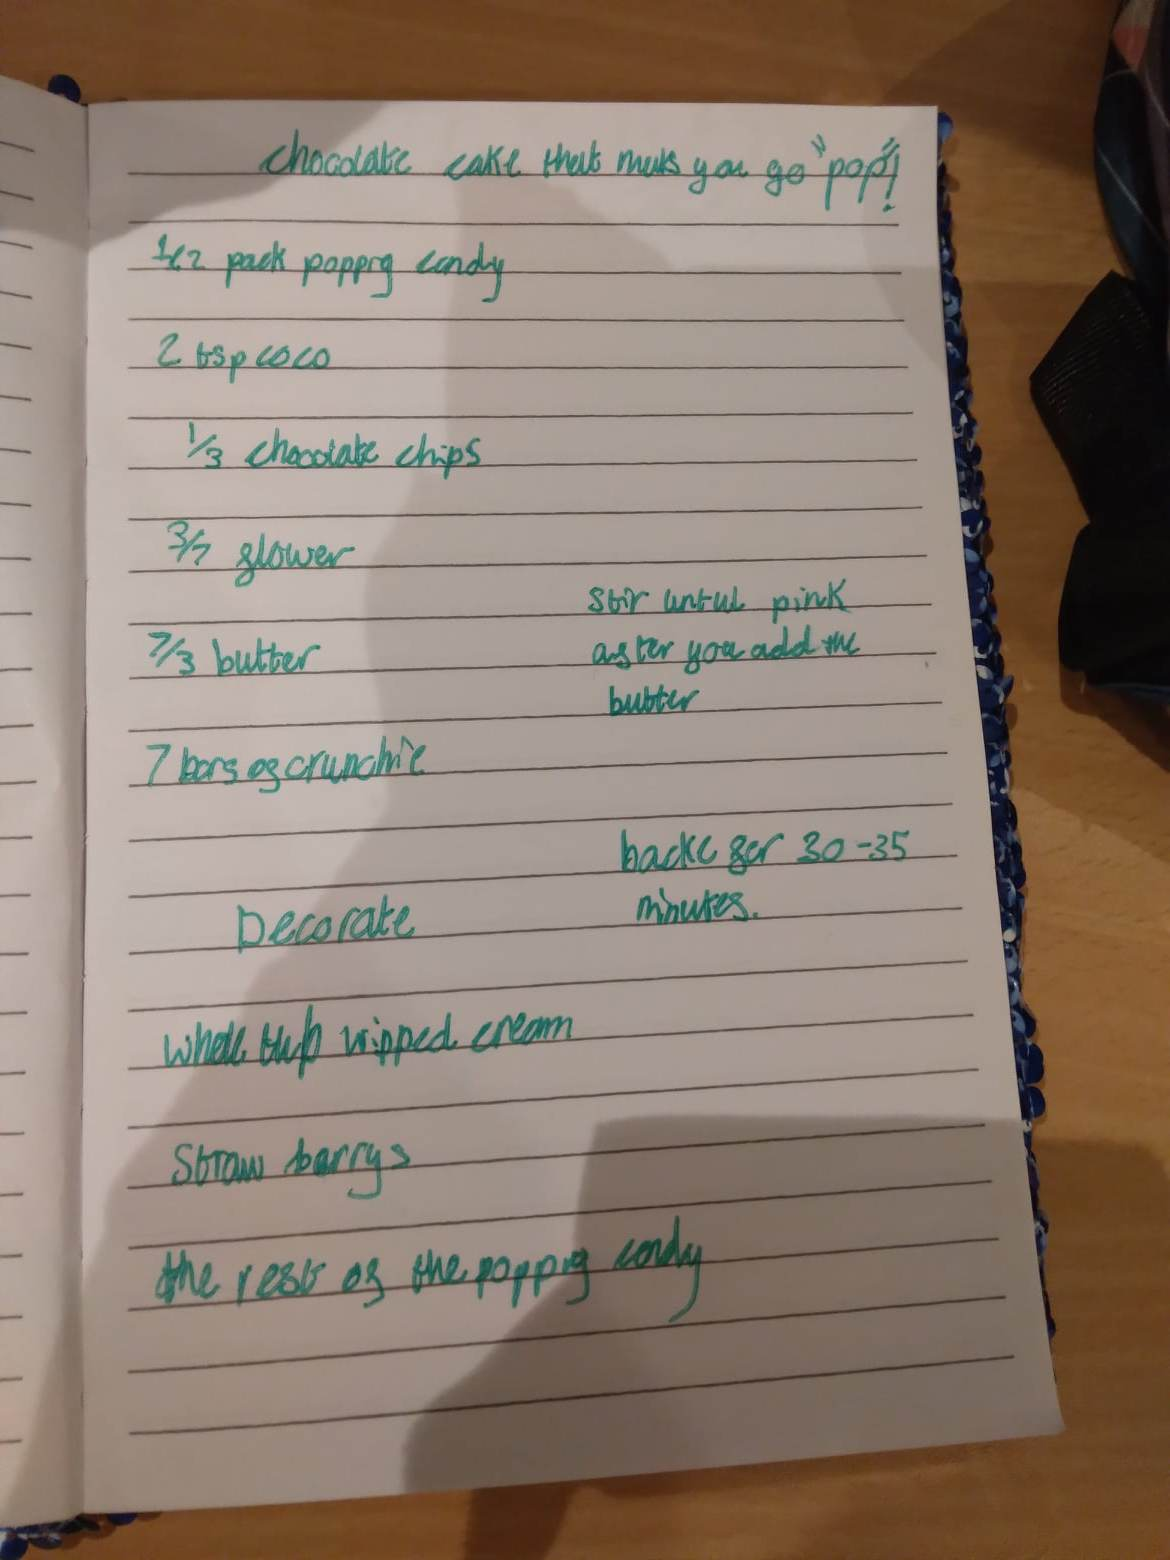 chocolate cake that maks you go "pop"!
1/2 pack poppng candy
2 tsp coco
1/3 chocolate chips
3/7 glower
7/3 butter
stir untul pink
agter you add the
butter
7 bars og crunchie
backe gor 30-35
minutes.
Decorate
whole tub wipped cream
straw barrys
the rest og the poppng candy